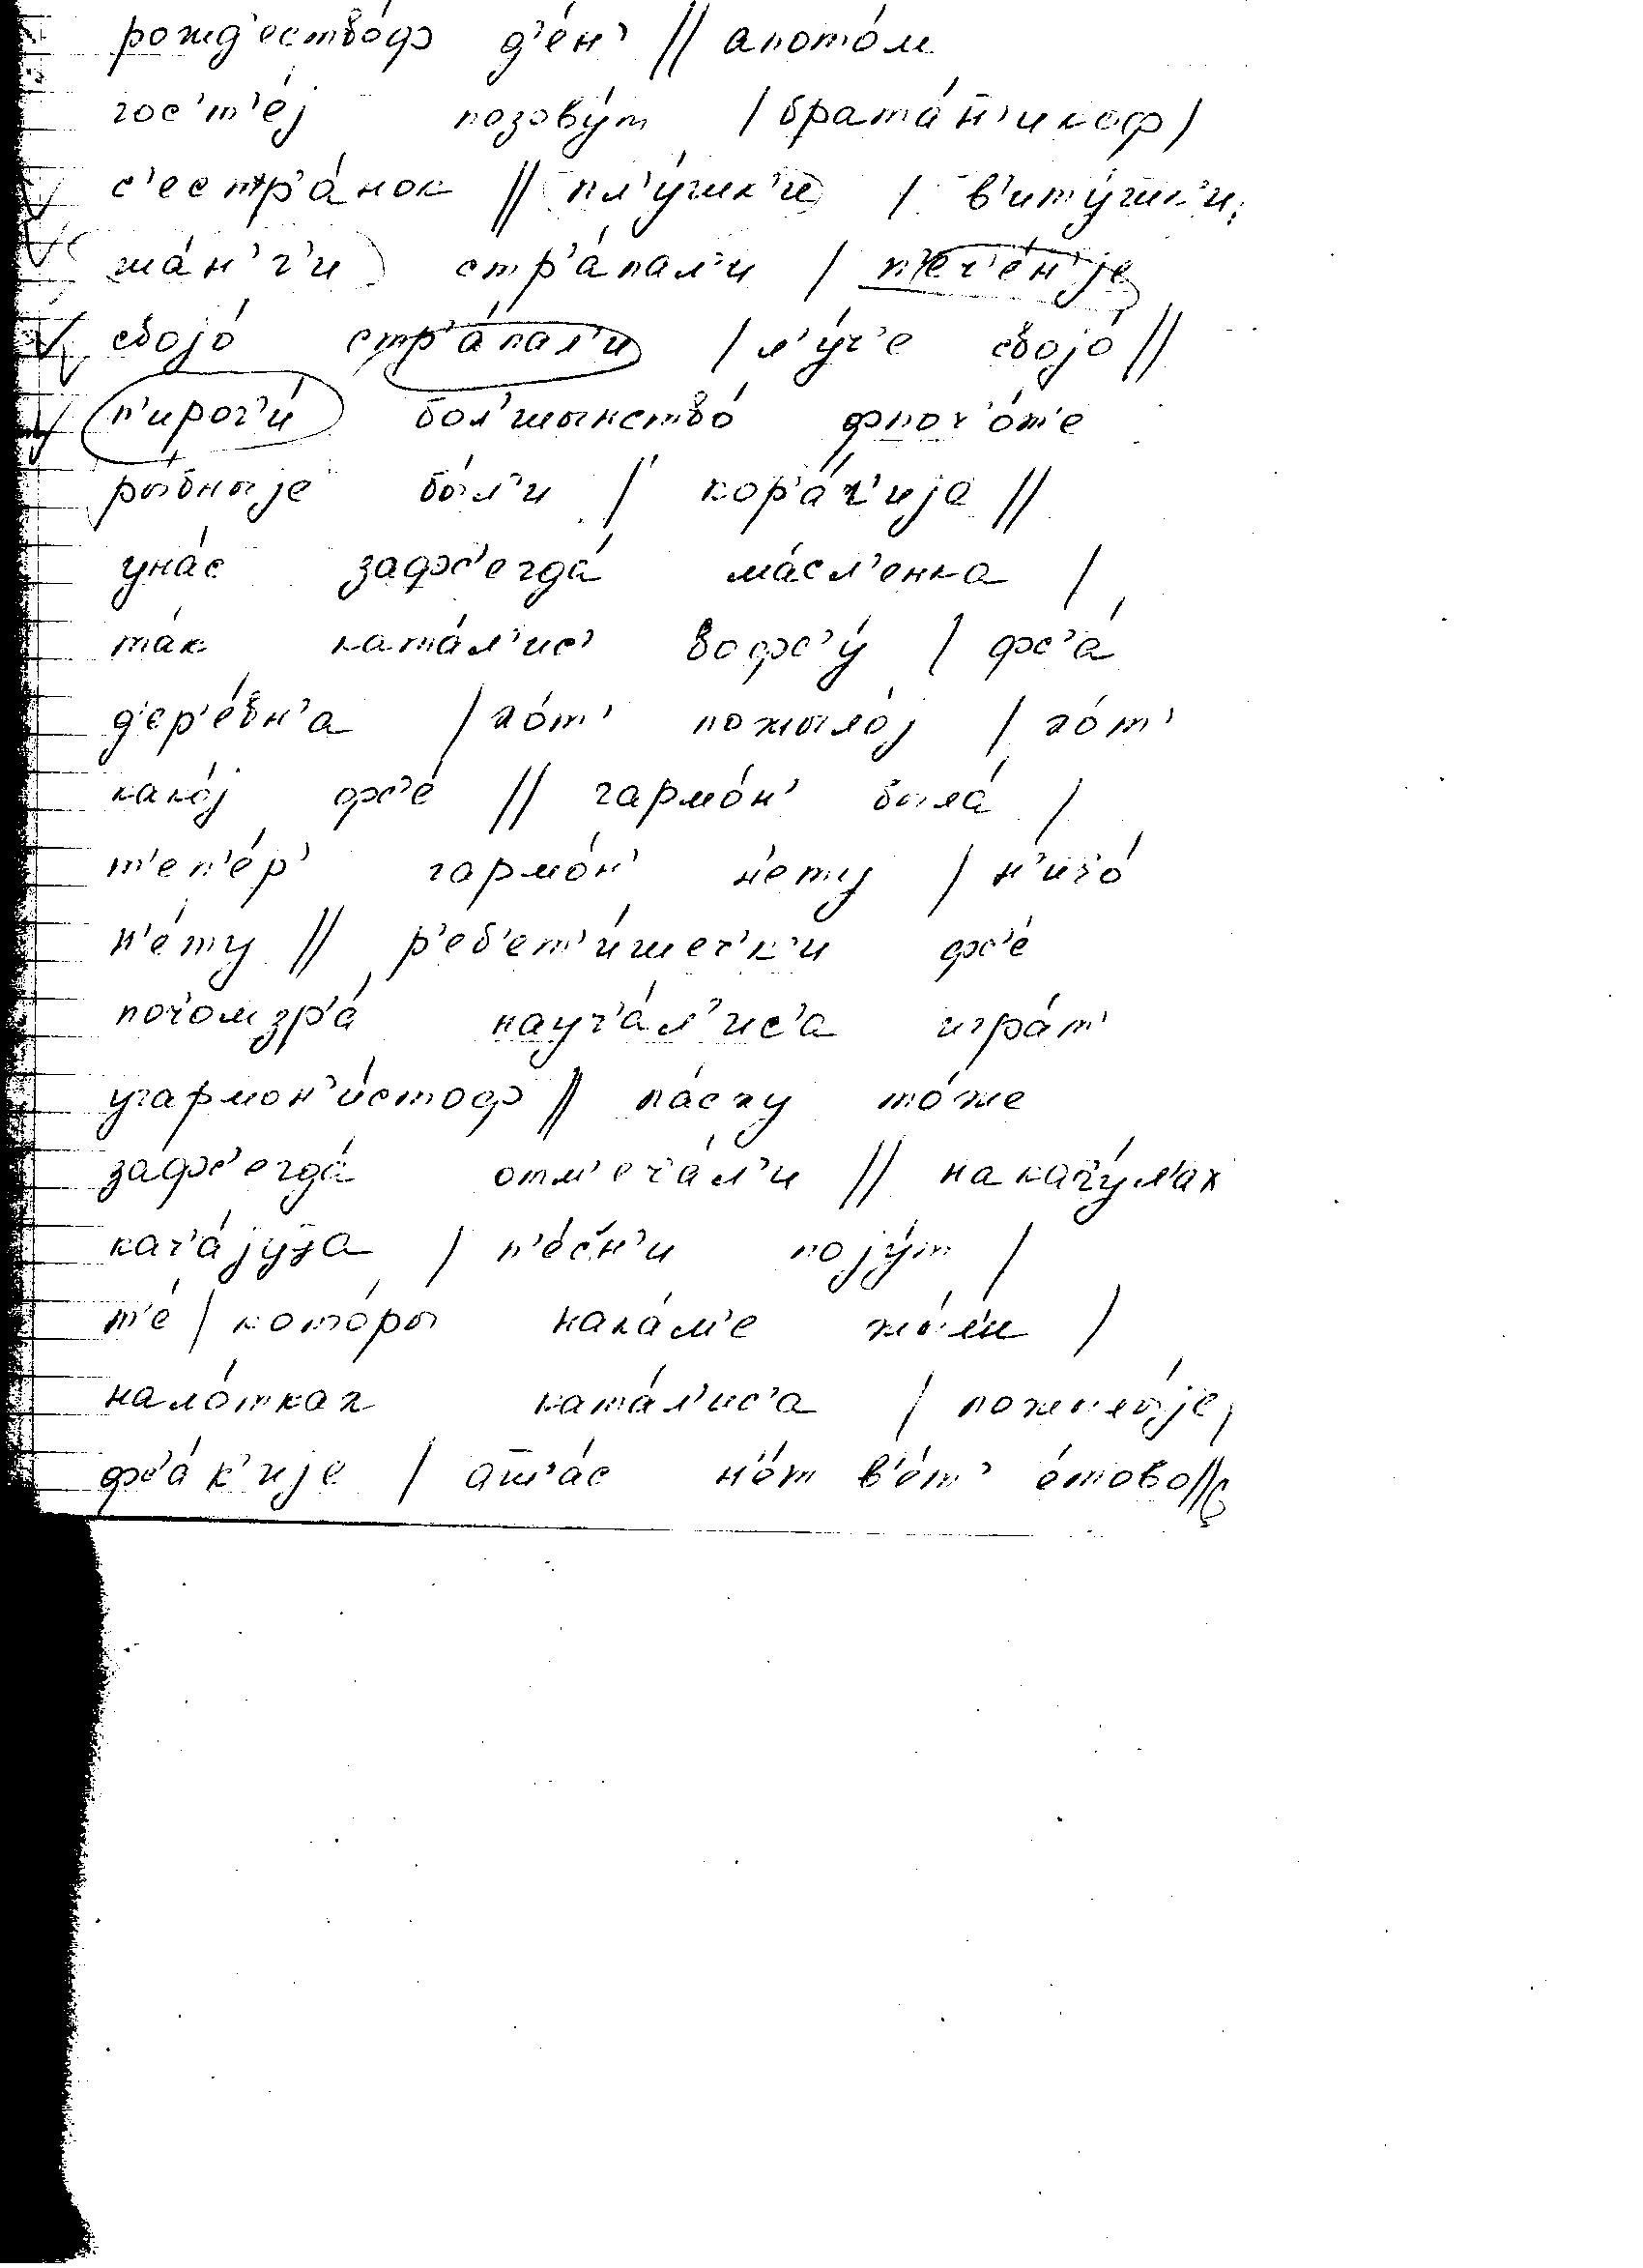 рожд'ество́ф д'е́н' // апото́м
гос'т'е́j позову́т / брата́н̄'икоф /
с'естр'а́нок // пл'у́шк'и / в'иту́шк'и,
ша́н'г'и стр'а́пал'и / п'еч'е́н'jе
своjо́ стр'а́пал'и / л'у́ч'е своjо́ //
п'ирог'и́ бол'шынство́ фпоч'о́т'е
ры́бныjе бы́л'и / кор'а́ч'иjе //
уна́с зафс'егда́ ма́сл'енка /
та́к ката́л'ис' вофс'у́ / фс'а́
д'ер'е́вн'а / хо́т' пожыло́j / хо́т'
како́j фс'е́ // гармо́н' была́ /
т'еп'е́р' гармо́н' н'е́ту / н'ич'о́
н'е́ту // р'еб'ет'и́шеч'к'и фс'е́
поч'омзр'а́ науч'а́л'ис'а игра́т'
угармон'и́стоф // па́сху то́же
зафс'егда́ отм'еч'а́л'и // накач'у́л'ах
кач'а́jуца / п'е́с'н'и поjу́т /
т'е́ / кото́ры нака́м'е жы́л'и /
нало́тках ката́л'ис'а / пожылы́jе,
фс'а́к'иjе / ат̄'а́с н'е́т в'е́т' е́тово //